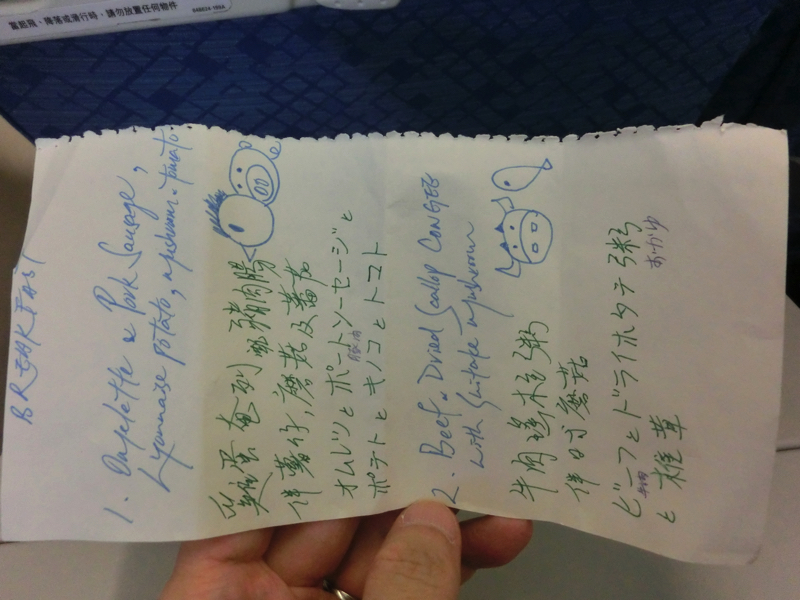 當起飛、降落或滑行時，請勿放置任何物件
BREAKFAST
1. Omelette & Pork Sausage,
Lyonnaise potato, mushroom & tomato
雞蛋奄列 豬肉腸
伴薯仔, 磨菇及蕃茄
オムレツとポートソーセージと
豚肉
ポテトとキノコとトマト
2. Beef & Dried Scallop CONGEE
with Shitake mushroom
牛肉瑤柱粥
伴日式磨菇
ビーフとドライホタテ粥
牛肉 おかゆ
と椎草